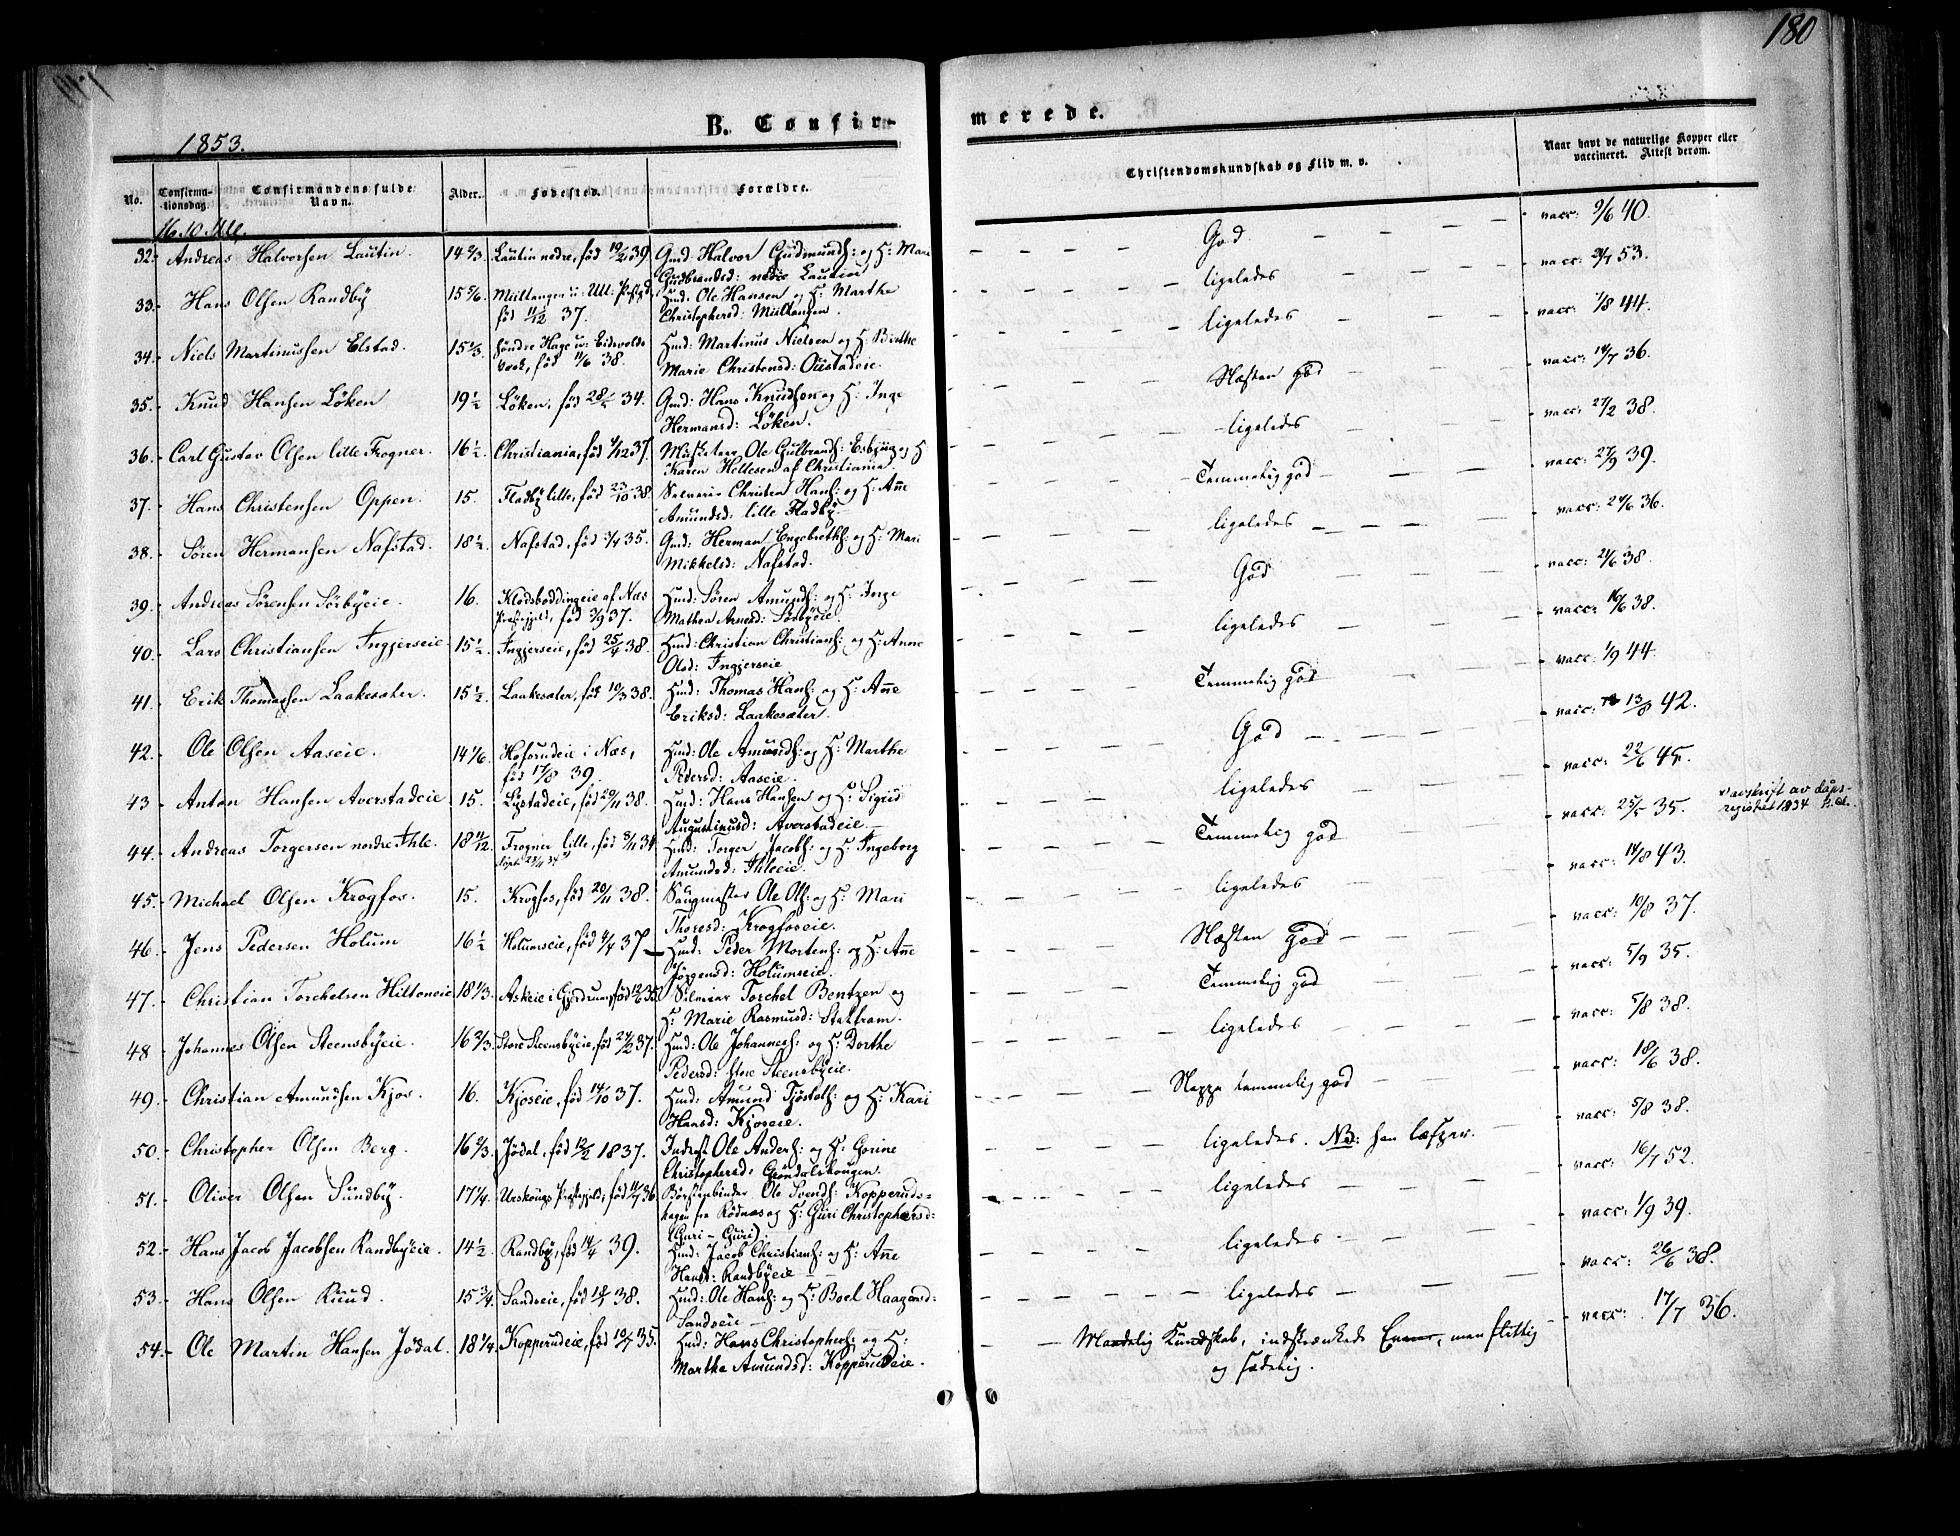 180
1853.
B. Confir-
merede.
No.
Confirma-
tionsdag.
Confirmandens fulde
Navn.
Alder.
Fødested.
Forældre.
Christendomskundskab og Flid m. v.
Naar havt de naturlige Kopper eller
vaccineret. Attest derom.
16.10. Ull.
32. Andreas Halvorsen Lautin. 14 2/3 Lautin nedre, fød 19/2 39 Gmd: Halvor Gudmunds: og H: Mari
Gudbrandsd: nedre Lautin
God vacc: 9/6 40.
33. Hans Olsen Randby 15 5/6 Multangen u: Ull: Prstgd, Huusd: Ole Hansen og H: Marthe
fød 11/12 37. Christophersd: Multangen.
ligeledes vacc: 53.
34. Niels Martinussen Elstad. 15 1/3 søndre Hage u: Eidsvolds Huusd: Martinus Nielsen og H: Birthe
Værk, fød 11/6 38. Marie Christensd: Oustadeie.
ligeledes vacc: 1/8 44.
35. Knud Hansen Løken 19 1/2 Løken, fød 34. Gmd: Hans Knudson og H: Inge
Hermansd: Løken.
Næsten god vacc: 14/7 36.
36. Carl Gustav Olsen lille Frogner. 16 1/2 Christiania, fød 37. Musketeer Ole Gulbrands: Esbjug og H
Karen Hellesen af Christiania
ligeledes vacc: 27/2 38.
37. Hans Christensen Oppen. 15. Fladby lille, fød 23/10 38. Selveier Christen Hans: og H: Anne
Amundsd: lille Fladby
Temmelig god vacc: 27/9 39.
38. Søren Hermansen Nafstad. 18 1/2 Nafstad, fød 35. Gmd: Herman Engebreths: og H: Mari
Mikkelsd: Nafstad.
ligeledes vacc: 24/6 36.
39. Andreas Sørensen Sørbyeie. 16. Klodsboddingeie af Næs Huusd: Søren Amunds: og H: Inge
Præstegjeld, fød 3/9 37. Mathea Arnesd: Sørbyeie.
God vacc: 21/6 38.
40. Lars Christiansen Ingjerseie 15 1/2 Ingjerseie, fød 25/4 38. Huusd: Christian Christians: og H: Anne
Olsd: Ingjerseie
ligeledes vacc: 16/6 38.
41. Erik Thomassen Laakesæter. 15 1/2 Laakesæter, fød 10/3 38. Huusd: Thomas Hans: og H: Anne
Eriksd: Laakesæter.
Temmelig god vacc: 1/9 44.
42. Ole Olsen Aaseie. 14 1/6 Hoforudeie i Næs, Huusd: Ole Amunds: og H: Marthe
fød 17/8 39. Pedersd: Aaseie.
God vacc: 13/8 42.
43 Anton Hansen Averstadeie 15. Lystadeie, fød 29/11 38. Huusd: Hans Hansen og H: Sigrid
Augustinusd: Averstadeie.
ligeledes vacc: 22/6 45.
44. Andreas Torgersen nordre Ihle. 18 11/12 Frogner lille, fød 8/11 34 Huusd: Torger Jacobs: og H: Ingeborg
døpt 23/11 34 x) Amundsd: Ihleeie.
Temmelig god vacc: 25/5 35.
x) avskrift av dåps-
registret 1834
45. Michael Olsen Krogfos. 15. Krogfos, fød 20/11 38. Saugmester Ole Ols: og H: Mari
Thoresd: Krogfoseie.
ligeledes vacc: 14/8 43.
46. Jens Pedersen Holum 16 1/2 Holumseie, fød 4/4 37 Huusd: Peder Mortens: og H: Anne
Jørgensd: Holumseie.
Næsten god vacc: 10/8 37.
47. Christian Torchelsen Hiltoneie 18 1/3 Askeie i Gjerdrum, fød 35 Selveier Torchel Bentzen og
H: Marie Rasmusd: Stalfram.
Temmelig god vacc: 5/9 35.
48 Johannes Olsen Steensbyeie. 16 2/3 Store Steensbyeie, fød 24/2 37. Huusd: Ole Johannes: og H: Dorthe
Pedersd: store Steensbyeie.
ligeledes vacc: 5/8 38.
49. Christian Amundsen Kjos. 16. Kjoseie, fød 14/10 37. Huusd: Amund Tjøstols: og H: Kari
Hansd: Kjoseie.
Neppe temmelig god vacc: 18/6 38.
50. Christopher Olsen Berg. 16 2/3 Jødal, fød 12/2 1837. Inderst Ole Anders: og H: Gorine
Christophersd: Grøndalskougen.
ligeledes. NB: vacc: 5/8 38.
51. Oliver Olsen Sundby. 17 1/4 Urskougs Præstegjeld, fød 36 Børstenbinder Ole Svends: Kopperuds-
hagen fra Rødnæs og H: Guri Christophersd:
(Guri - Guri).
ligeledes vacc: 16/7 52.
52. Hans Jacob Jacobsen Randbyeie. 14 1/2 Randby, fød 14/4 39. Huusd: Jacob Christians: og H: Anne
Hansd: Randbyeie
ligeledes vacc: 1/9 39.
53. Hans Olsen Ruud. 15 3/4. Sandseie, fød 38. Huusd: Ole Hans: og H: Boel Haagensd:
Sandseie
ligeledes vacc: 26/6 38.
54. Ole Martin Hansen Jødal. 18 1/4 Kopperudeie, fød 10/7 35. Huusd: Hans Christophers: og H:
Martha Amundsd: Kopperudeie.
Maadelig Kundskab, indskrænkede Evner, men flittig
og sædelig.
vacc: 17/7 36.